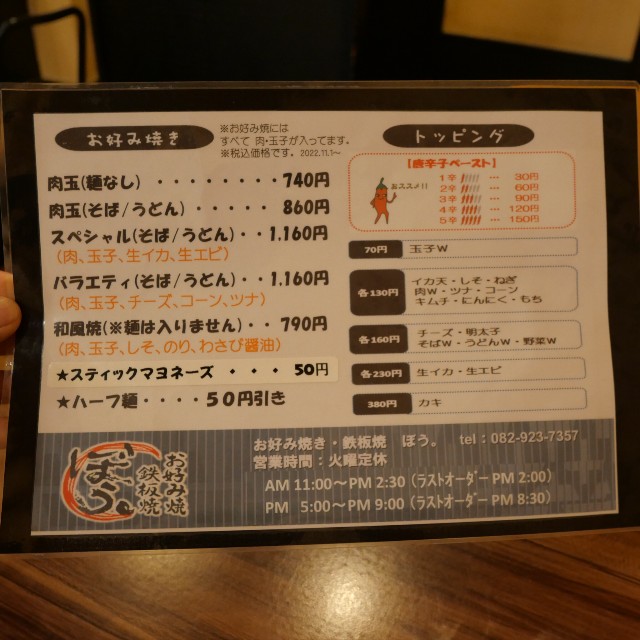 お好み焼き
※お好み焼には
すべて 肉・玉子が入ってます。
※税込価格です。2022.11.1～
肉玉(麺なし) ・・・・・・・・740円
肉玉(そば/うどん) ・・・・・860円
スペシャル(そば/うどん)・・1.160円
(肉、玉子、生イカ、生エビ)
バラエティ(そば/うどん)・・1.160円
(肉、玉子、チーズ、コーン、ツナ)
和風焼(※麺は入りません)・・790円
(肉、玉子、しそ、のり、わさび醤油)
★スティックマヨネーズ ・・・50円
★ハーフ麺・・・・50円引き
トッピング
【唐辛子ペースト】
おススメ!!
1辛 ・・・ 30円
2辛 ・・・ 60円
3辛 ・・・ 90円
4辛 ・・・ 120円
5辛 ・・・ 150円
70円 玉子W
各130円 イカ天・しそ・ねぎ
肉W・ツナ・コーン
キムチ・にんにく・もち
各160円 チーズ・明太子
そばW・うどんW・野菜W
各230円 生イカ・生エビ
380円 カキ
ぼう。
お好み焼
鉄板焼
お好み焼き・鉄板焼 ぼう。 tel：082-923-7357
営業時間：火曜定休
AM 11:00～PM 2:30（ラストオーダーPM 2:00）
PM 5:00～PM 9:00（ラストオーダーPM 8:30）